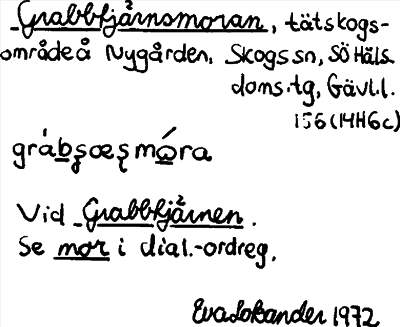 Grabbtjärnsmoran, tätskogs-
område å Nygården, Skogs sn, SÖ Häls.
doms.tg, Gävl.l.
156 (14H6c)
gràbʂœʂmɷ́ra
Vid Grabbtjärnen.
Se mor i dial.-ordreg.
Eva Lokander 1972